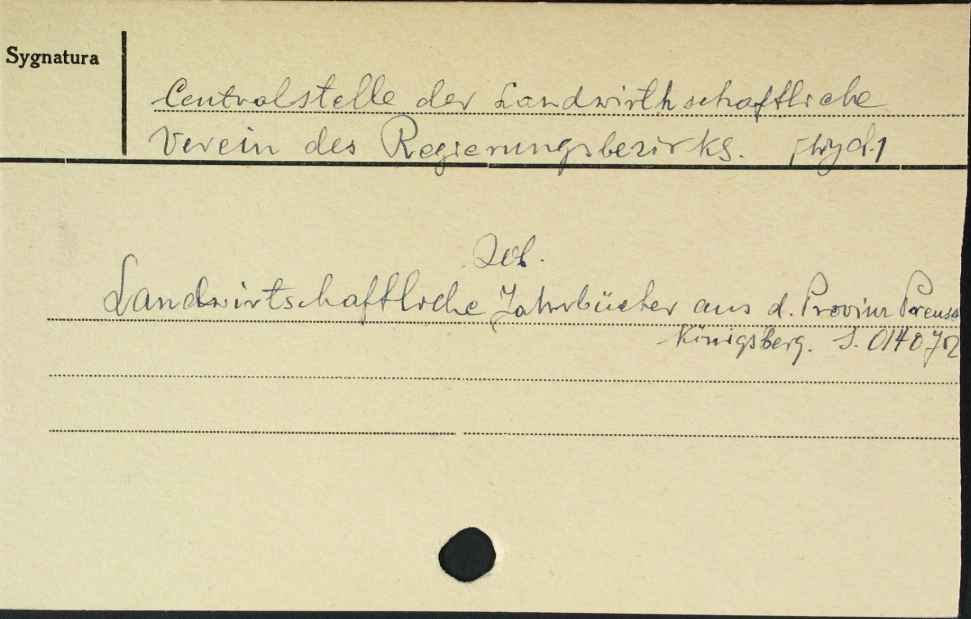 Sygnatura
Centralstelle der Landwirthschaftliche
Verein des Regierungsbezirks. [wyd.]
Zob.
Landwirtschaftliche Jahrbücher aus d. Provinz Preuss
Königsberg. S. 014072